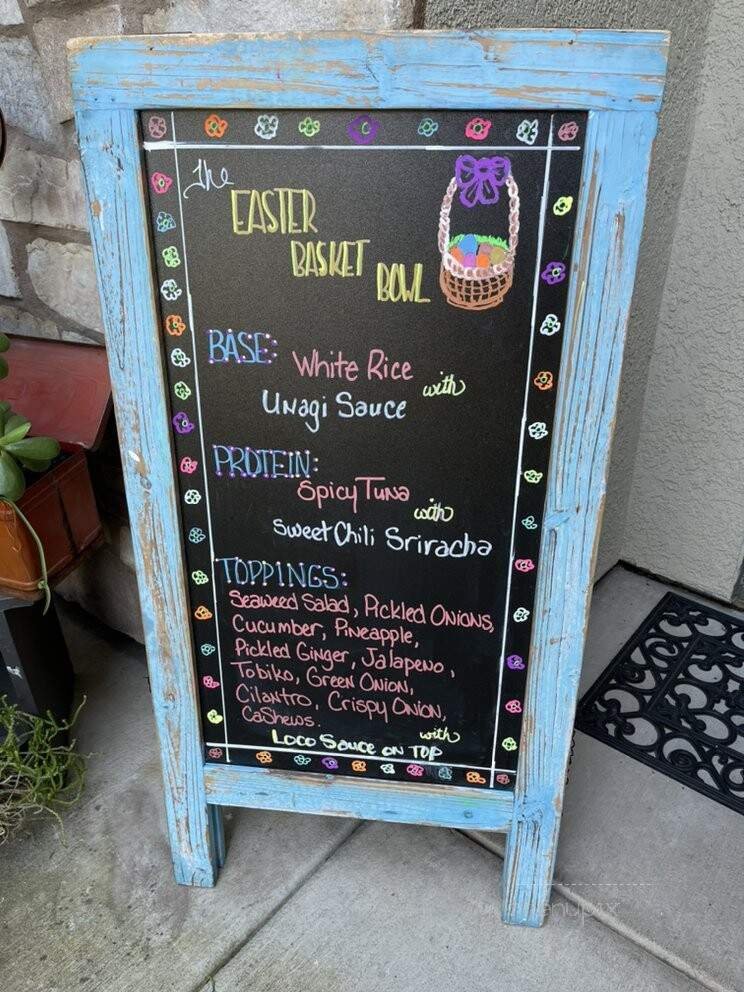 The
EASTER
BASKET
BOWL
BASE: White Rice with
Unagi Sauce
PROTEIN:
Spicy Tuna
with
Sweet Chili Sriracha
TOPPINGS:
Seaweed Salad, Pickled Onions,
Cucumber, Pineapple,
Pickled Ginger, Jalapeno,
Tobiko, Green Onion,
Cilantro, Crispy Onion,
Cashews.
with
Loco Sauce on Top
menupix